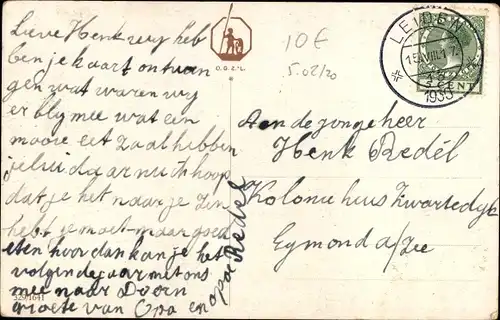 Lieve Henk wy heb
ben je kaart ontvan
gen wat waren wy
er bly mee wat een
mooie eet zaal hebben
jelui daar nu ik hoop
dat je het naar je zin
hebt je moet maar goed
eten hoor dan kan je het
volginde jaar met ons
mee naar Doorn
groete van Opa en opoe
Redel
329/1641
O.G.Z.L.
10 €
5.02/20
LEIDEN
1935
CENT
Aan de jongeheer
Henk Redèl
Kolonie huis Zwartedijk
Egmond a/zee